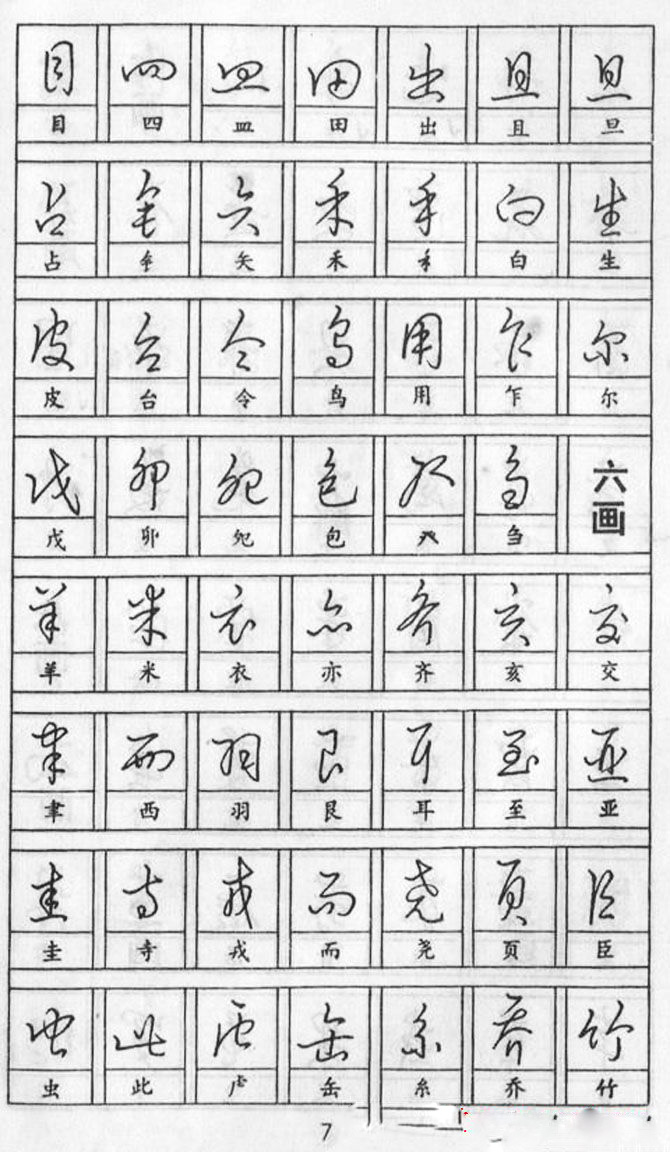 目 四 皿 田 出 且 旦
目 四 皿 田 出 且 旦
占 矢 禾 白 生
占 矢 禾 白 生
皮 台 令 鸟 用 乍 尔
皮 台 令 鸟 用 乍 尔
戊 卯 夗 包 癶 刍 六画
戊 卯 夗 包 癶 刍
羊 米 衣 亦 齐 亥 交
羊 米 衣 亦 齐 亥 交
聿 西 羽 艮 耳 至 亚
聿 西 羽 艮 耳 至 亚
圭 寺 戎 而 尧 页 臣
圭 寺 戎 而 尧 页 臣
虫 此 虍 缶 糸 乔 竹
虫 此 虍 缶 糸 乔 竹
7